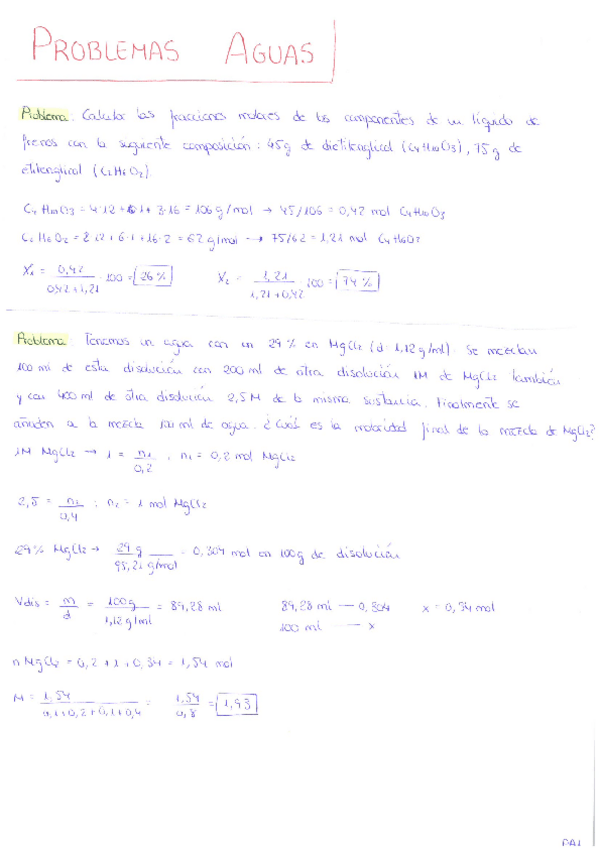 PROBLEMAS AGUAS
Problema: Calcular las fracciones molares de los componentes de un líquido de
frenos con la siguiente composición: 45g de dietilenglicol (C4H10O3), 75g de
etilenglicol (C2H6O2).
C4H10O3 = 4·12 + 10·1 + 3·16 = 106 g/mol → 45/106 = 0,42 mol C4H10O3
C2H6O2 = 2·12 + 6·1 + 16·2 = 62 g/mol → 75/62 = 1,21 mol C4H6O2
X1 = 0,42 / 0,42+1,21 · 100 = 26% X2 = 1,21 / 1,21+0,42 · 100 = 74%
Problema: Tenemos un agua con un 29% en MgCl2 (d: 1,12g/ml). Se mezclan
100 ml de esta disolución con 200 ml de otra disolución 1M de MgCl2 también
y con 400 ml de otra disolución 2,5M de la misma sustancia. Finalmente se
añaden a la mezcla 100 ml de agua. ¿Cuál es la molaridad final de la mezcla de MgCl2?
1M MgCl2 → 1 = n1 / 0,2 ; n1 = 0,2 mol MgCl2
2,5 = n2 / 0,4 ; n2 = 1 mol MgCl2
29% MgCl2 → 29 g / 95,21 g/mol = 0,304 mol en 100g de disolución
Vdis = m / d = 100g / 1,12g/ml = 89,28 ml 89,28 ml — 0,304 x = 0,34 mol
100 ml — x
n MgCl2 = 0,2 + 1 + 0,34 = 1,54 mol
M = 1,54 / 0,1+0,2+0,1+0,4 = 1,54 / 0,8 = 1,93